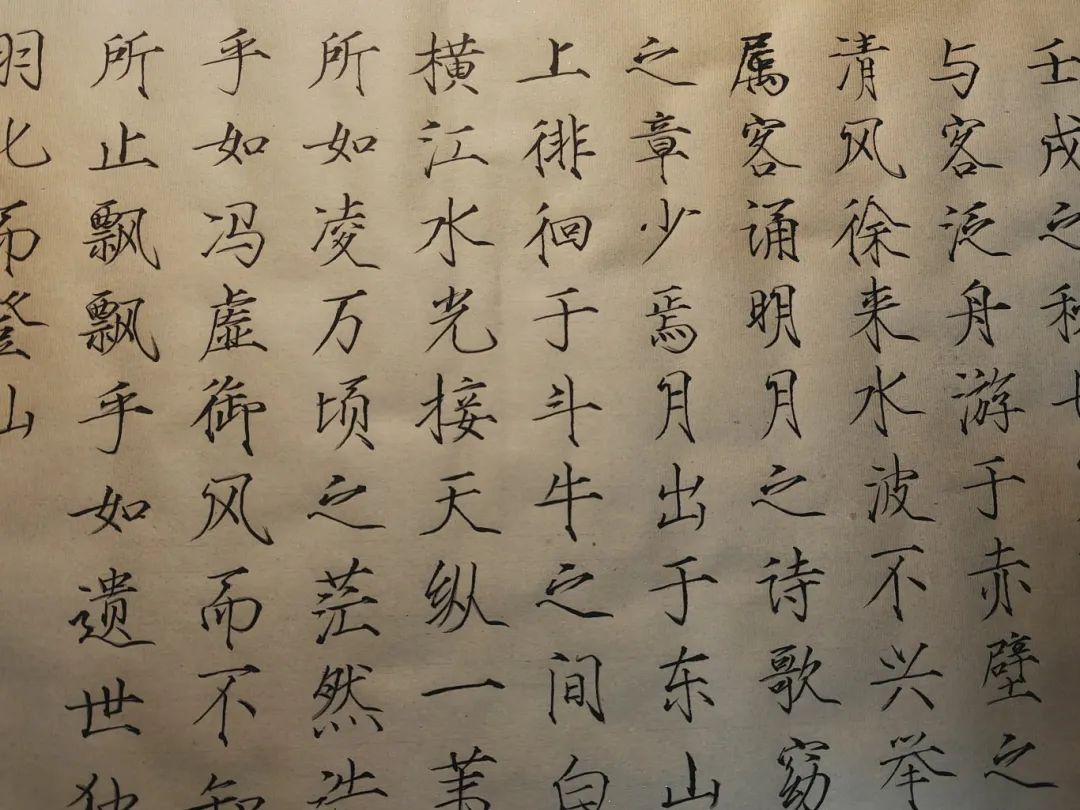 壬戌之秋七
与客泛舟游于赤壁之
清风徐来水波不兴举
属客诵明月之诗歌窈
之章少焉月出于东山
上徘徊于斗牛之间白
横江水光接天纵一苇
所如凌万顷之茫然浩
乎如冯虚御风而不知
所止飘飘乎如遗世独
羽化而登仙